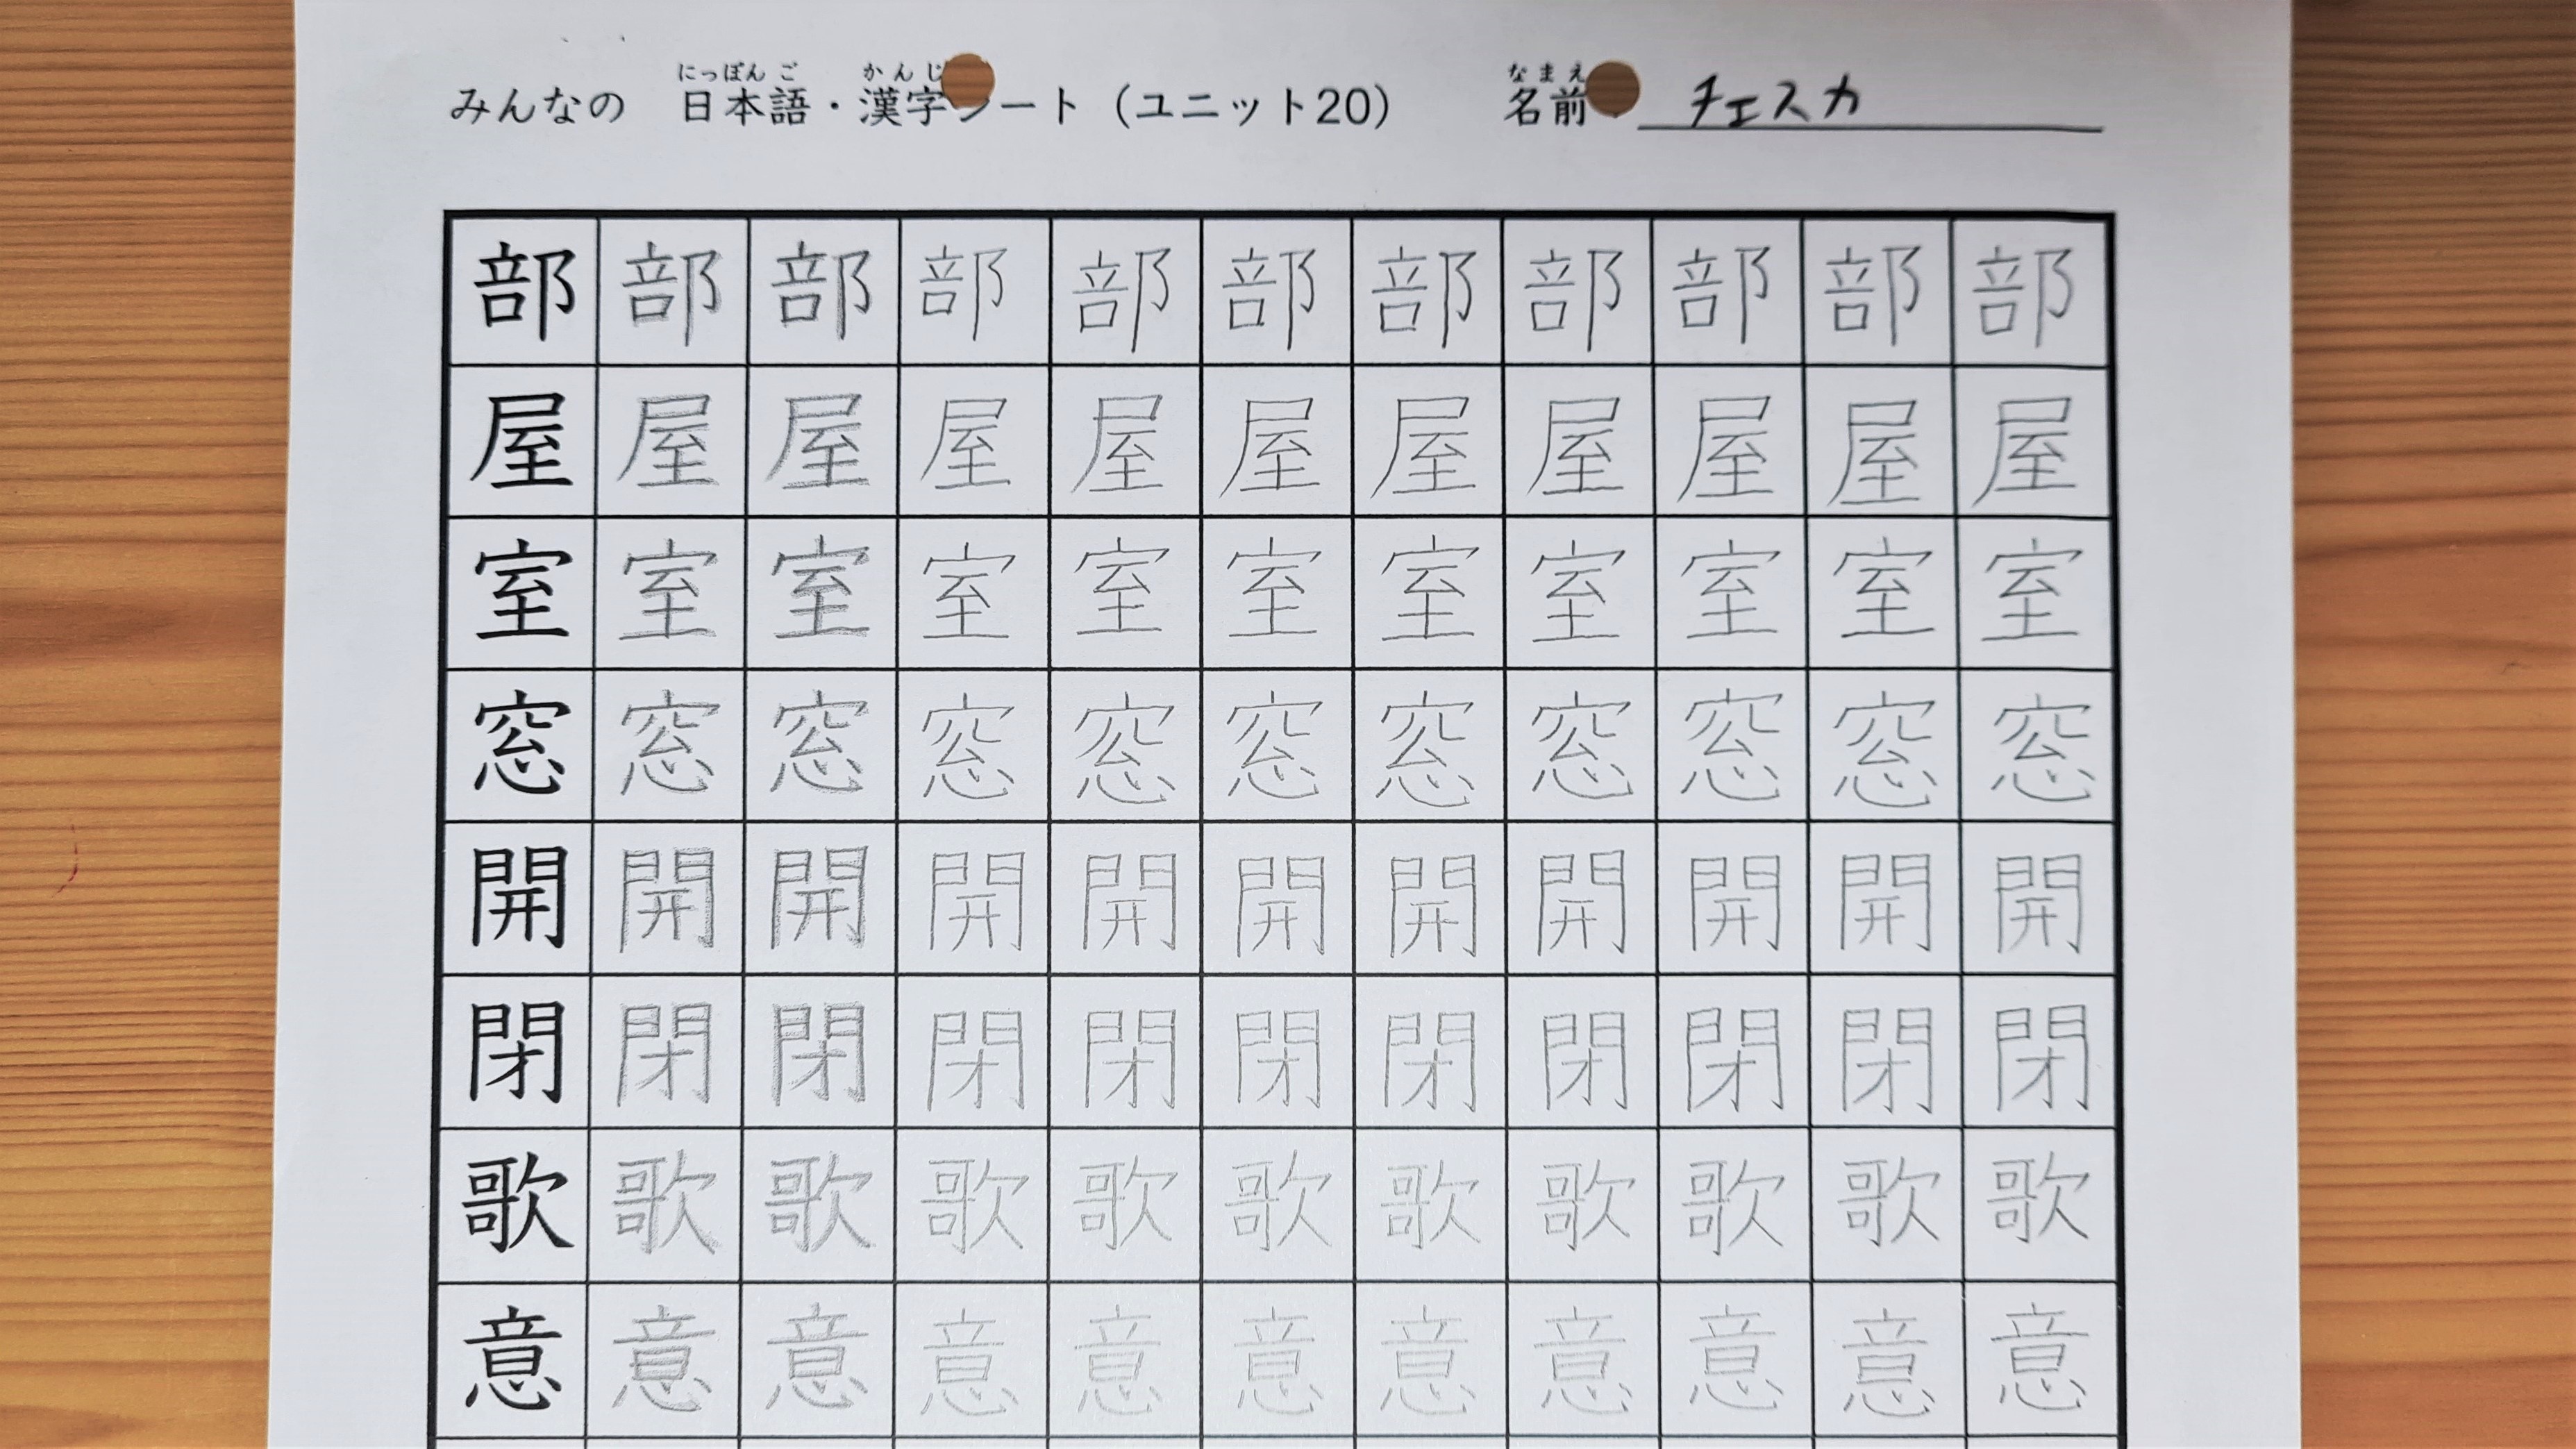 にっぽんご かんじ なまえ
みんなの 日本語・漢字シート（ユニット20） 名前 チェスカ
部 部 部 部 部 部 部 部 部 部 部
屋 屋 屋 屋 屋 屋 屋 屋 屋 屋 屋
室 室 室 室 室 室 室 室 室 室 室
窓 窓 窓 窓 窓 窓 窓 窓 窓 窓 窓
開 開 開 開 開 開 開 開 開 開 開
閉 閉 閉 閉 閉 閉 閉 閉 閉 閉 閉
歌 歌 歌 歌 歌 歌 歌 歌 歌 歌 歌
意 意 意 意 意 意 意 意 意 意 意